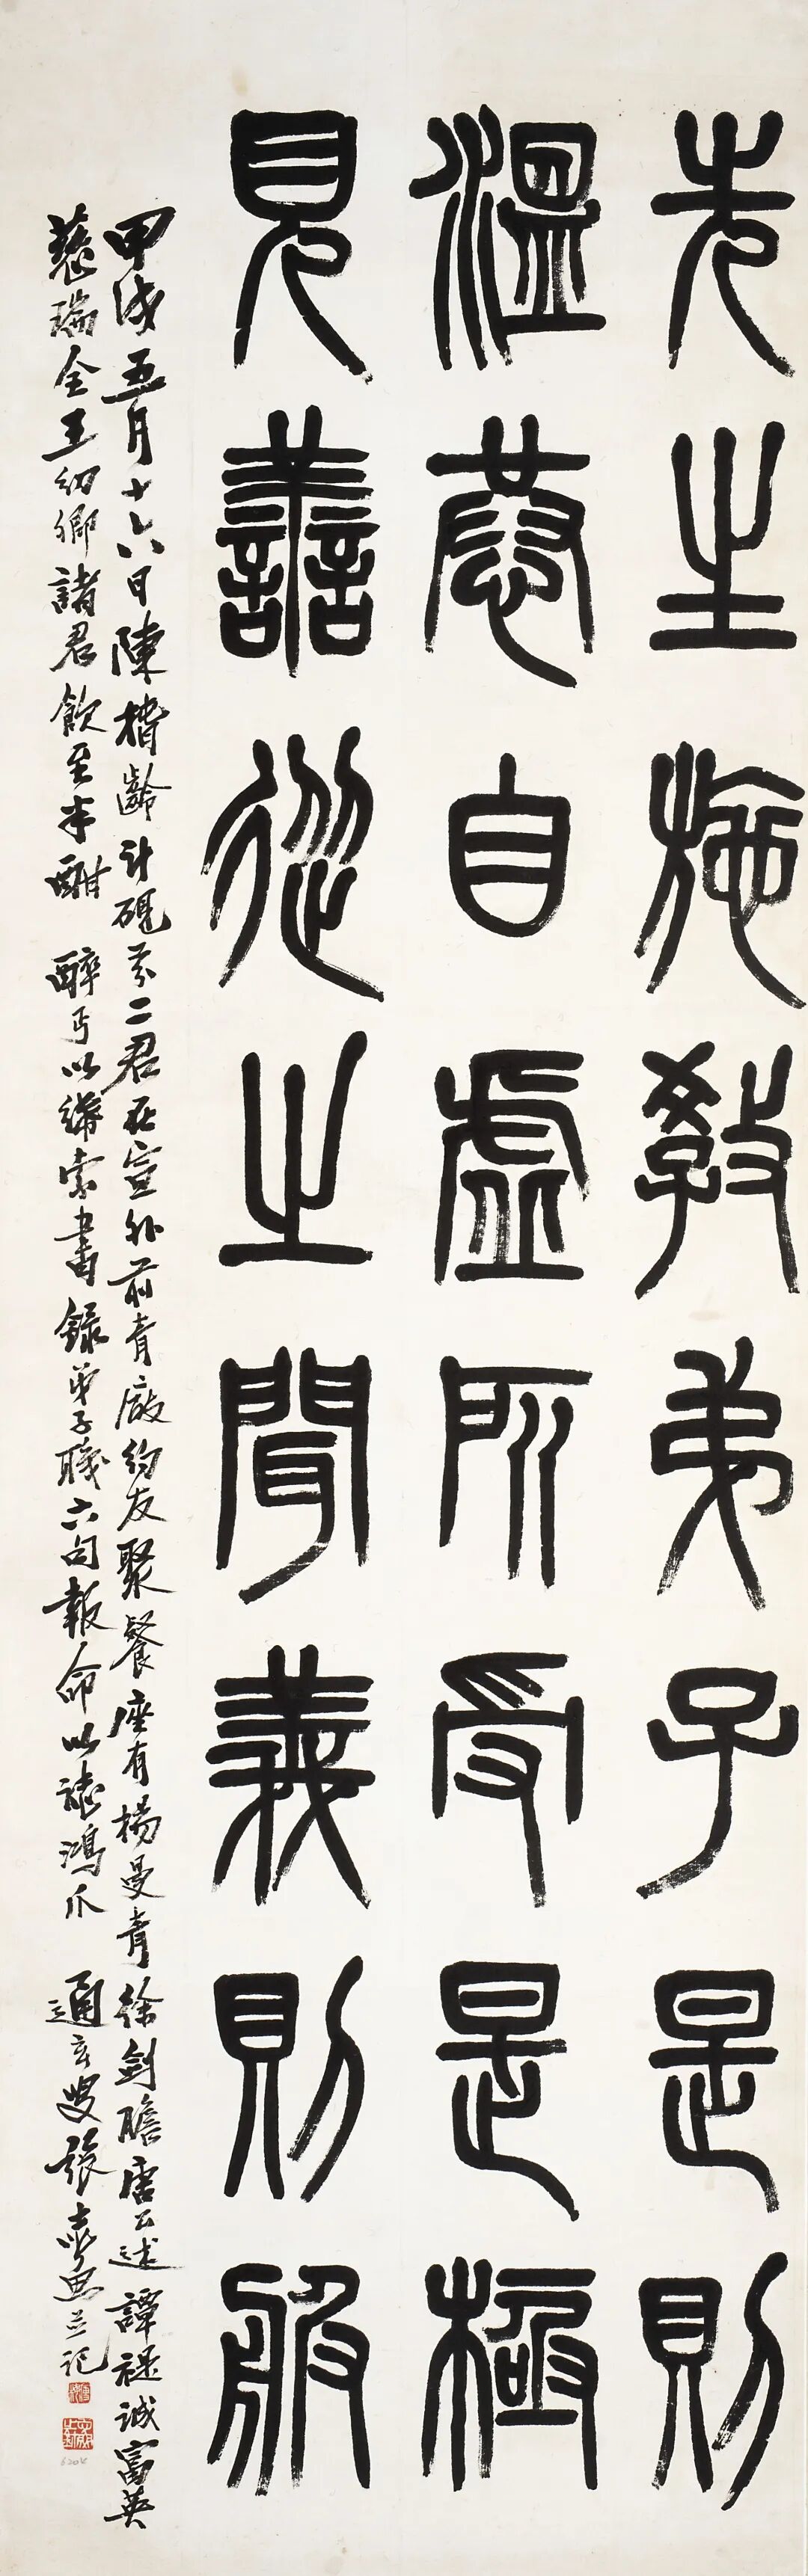 先生施教弟子是則
溫恭自虛所受是極
見善從之聞義則服
甲戌五月十六日陳楷齡計硯芬二君在宣外前青廠約友聚餐座有楊曼青徐劍膽唐公述譚禔誠富英
慈瑞全王幼卿諸君飲至半酣醉后以紙索書錄弟子職六句報命以誌鴻爪通玄叟張壽 並記
6204